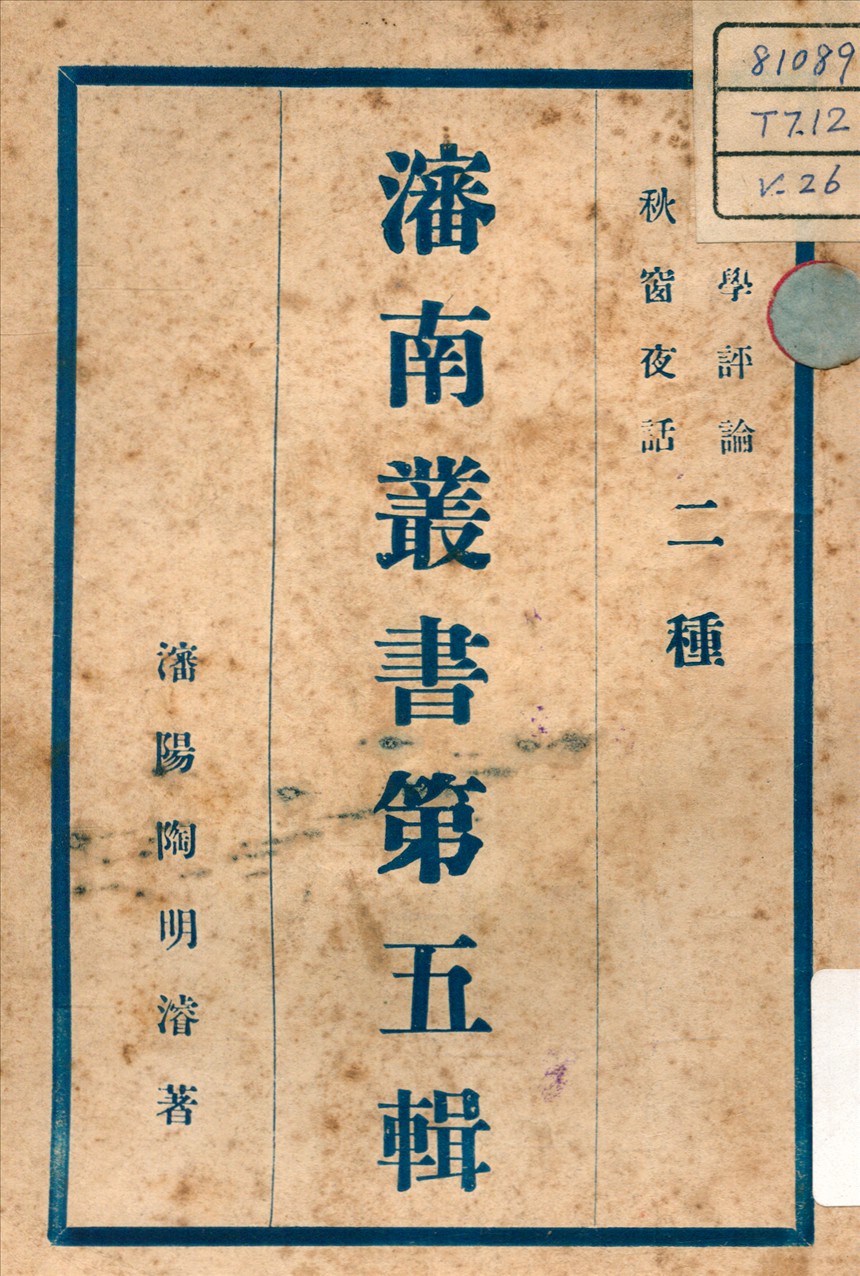 81089
T7.12
V.26
學評論
秋窗夜話
二種
瀋南叢書第五輯
瀋陽陶明濬著